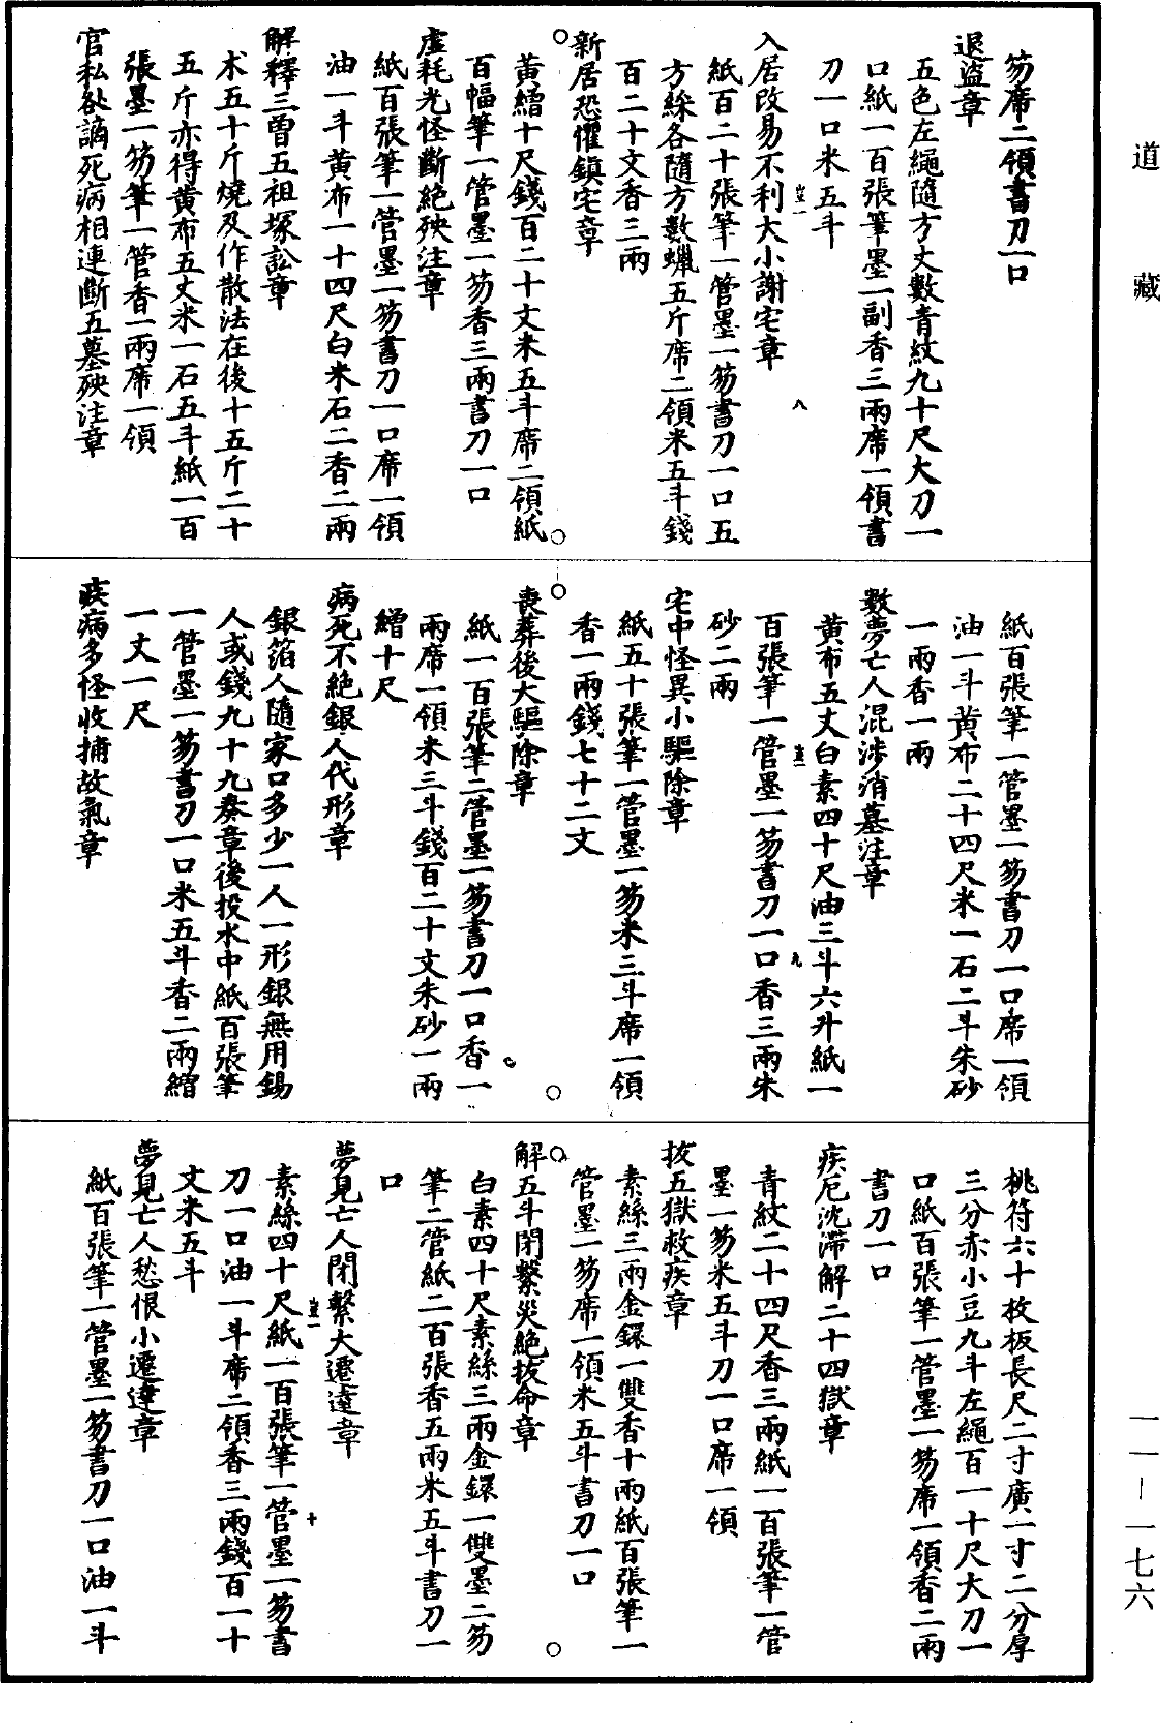 道藏
笏席二領書刀一口
退盜章
五色左繩隨方丈數青紋九十尺大刀一
口紙一百張筆墨一副香三兩席一領書
刀一口米五斗
入居改易不利大小謝宅章
紙百二十張筆一管墨一笏書刀一口五
方綵各隨方數蠟五斤席二領米五斗錢
百二十文香三兩
新居恐懼鎮宅章
黃繒十尺錢百二十文米五斗席二領紙
百幅筆一管墨一笏香三兩書刀一口
虛耗光怪斷絕殃注章
紙百張筆一管墨一笏書刀一口席一領
油一斗黃布一十四尺白米石二香二兩
解釋三曾五祖塚訟章
朮五十斤燒及作散法在後十五斤二十
五斤亦得黃布五丈米一石五斗紙一百
張墨一笏筆一管香一兩席一領
官私咎謫死病相連斷五墓殃注章
紙百張筆一管墨一笏書刀一口席一領
油一斗黃布二十四尺米一石二斗朱砂
一兩香一兩
數夢亡人混涉消墓注章
黃布五丈白素四十尺油三斗六升紙一
百張筆一管墨一笏書刀一口香三兩朱
砂二兩
宅中怪異小驅除章
紙五十張筆一管墨一笏米三斗席一領
香一兩錢七十二文
喪葬後大驅除章
紙一百張筆二管墨一笏書刀一口香一
兩席一領米三斗錢百二十文朱砂一兩
繒十尺
病死不絕銀人代形章
銀箔人隨家口多少一人一形銀無用錫
人或錢九十九奏章後投水中紙百張筆
一管墨一笏書刀一口米五斗香二兩繒
一丈一尺
疾病多怪收捕故氣章
桃符六十枚板長尺二寸廣一寸二分厚
三分赤小豆九斗左繩百一十尺大刀一
口紙百張筆一管墨一笏席一領香二兩
書刀一口
疾厄沈滯解二十四獄章
青紋二十四尺香三兩紙一百張筆一管
墨一笏米五斗刀一口席一領
拔五獄救疾章
素絲三兩金鐶一雙香十兩紙百張筆一
管墨一笏席一領米五斗書刀一口
解五斗閉繫災絕拔命章
白素四十尺素絲三兩金鐶一雙墨二笏
筆二管紙二百張香五兩米五斗書刀一
口
夢見亡人閉繫大遷達章
素絲四十尺紙一百張筆一管墨一笏書
刀一口油一斗席二領香三兩錢百一十
文米五斗
夢見亡人愁恨小遷達章
紙百張筆一管墨一笏書刀一口油一斗
八
九
十
一一－一七六